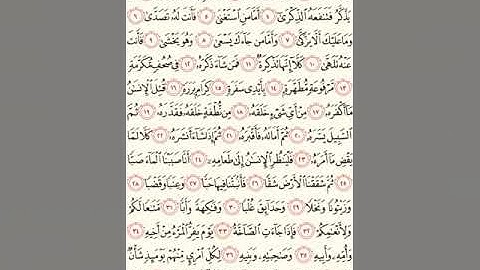 يَذَّكَّرُ فَتَنفَعَهُ ٱلذِّكْرَىٰٓ ٤ أَمَّا مَنِ ٱسْتَغْنَىٰ ٥ فَأَنتَ لَهُۥ تَصَدَّىٰ ٦
وَمَا عَلَيْكَ أَلَّا يَزَّكَّىٰ ٧ وَأَمَّا مَن جَآءَكَ يَسْعَىٰ ٨ وَهُوَ يَخْشَىٰ ٩ فَأَنتَ
عَنْهُ تَلَهَّىٰ ١٠ كَلَّآ إِنَّهَا تَذْكِرَةٌ ١١ فَمَن شَآءَ ذَكَرَهُۥ ١٢ فِي صُحُفٍ مُّكَرَّمَةٍ
١٣ مَّرْفُوعَةٍ مُّطَهَّرَةٍۭ ١٤ بِأَيْدِي سَفَرَةٍ ١٥ كِرَامٍۭ بَرَرَةٍ ١٦ قُتِلَ ٱلْإِنسَٰنُ
مَآ أَكْفَرَهُۥ ١٧ مِنْ أَيِّ شَيْءٍ خَلَقَهُۥ ١٨ مِن نُّطْفَةٍ خَلَقَهُۥ فَقَدَّرَهُۥ ١٩ ثُمَّ
ٱلسَّبِيلَ يَسَّرَهُۥ ٢٠ ثُمَّ أَمَاتَهُۥ فَأَقْبَرَهُۥ ٢١ ثُمَّ إِذَا شَآءَ أَنشَرَهُۥ ٢٢ كَلَّا لَمَّا
يَقْضِ مَآ أَمَرَهُۥ ٢٣ فَلْيَنظُرِ ٱلْإِنسَٰنُ إِلَىٰ طَعَامِهِۦٓ ٢٤ أَنَّا صَبَبْنَا ٱلْمَآءَ صَبًّا
٢٥ ثُمَّ شَقَقْنَا ٱلْأَرْضَ شَقًّا ٢٦ فَأَنۢبَتْنَا فِيهَا حَبًّا ٢٧ وَعِنَبًا وَقَضْبًا ٢٨
وَزَيْتُونًا وَنَخْلًا ٢٩ وَحَدَآئِقَ غُلْبًا ٣٠ وَفَٰكِهَةً وَأَبًّا ٣١ مَّتَٰعًا لَّكُمْ
وَلِأَنْعَٰمِكُمْ ٣٢ فَإِذَا جَآءَتِ ٱلصَّآخَّةُ ٣٣ يَوْمَ يَفِرُّ ٱلْمَرْءُ مِنْ أَخِيهِ ٣٤
وَأُمِّهِۦ وَأَبِيهِ ٣٥ وَصَٰحِبَتِهِۦ وَبَنِيهِ ٣٦ لِكُلِّ ٱمْرِئٍ مِّنْهُمْ يَوْمَئِذٍ شَأْنٌ